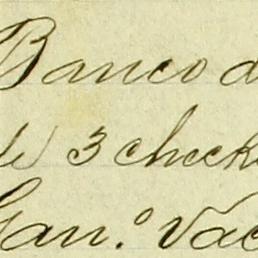 Banco d
de 3 check
Gan.º Vac